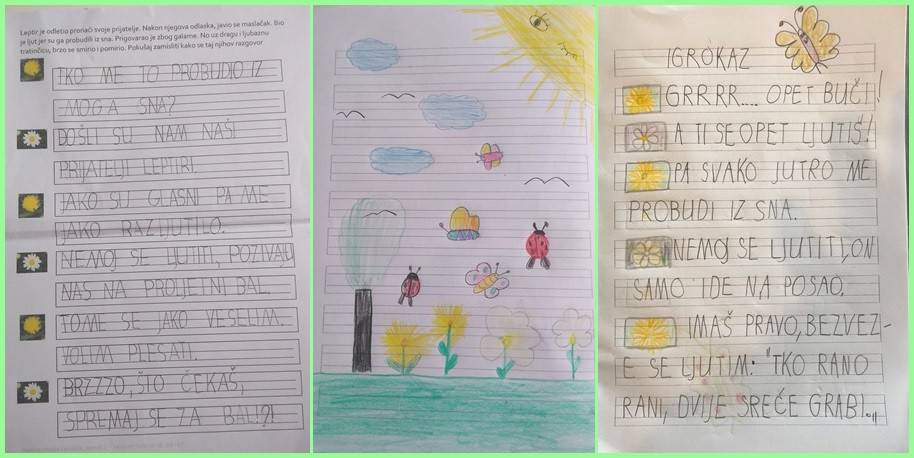 Leptir je odletio pronaći svoje prijatelje. Nakon njegova odlaska, javio se maslačak. Bio
je ljut jer su ga probudili iz sna. Prigovarao je zbog galame. No uz dragu i ljubaznu
tratinčicu, brzo se smirio i pomirio. Pokušaj zamisliti kako se taj njihov razgovor
TKO ME TO PROBUDIO IZ
MOGA SNA?
DOŠLI SU NAM NAŠI
PRIJATELJI LEPTIRI.
JAKO SU GLASNI PA ME
JAKO RAZLJUTILO.
NEMOJ SE LJUTITI, POZIVAJU
NAS NA PROLJETNI BAL.
TOME SE JAKO VESELIM.
VOLIM PLESATI.
BRZZZO, ŠTO ČEKAŠ,
SPREMAJ SE ZA BAL!?!
IGROKAZ
GRRRR.... OPET BUČI!
A TI SE OPET LJUTIŠ!
PA SVAKO JUTRO ME
PROBUDI IZ SNA.
NEMOJ SE LJUTITI, ON
SAMO IDE NA POSAO.
IMAŠ PRAVO, BEZVEZ-
E SE LJUTIM: "TKO RANO
RANI, DVIJE SREĆE GRABI.„